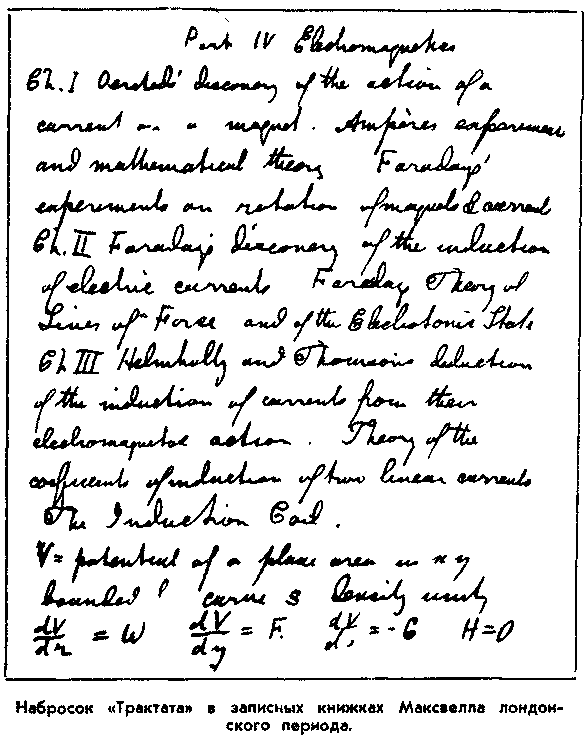 Part IV Electromagnetics
Ch. I Oersteds' discovery of the action of a
current on a magnet. Ampères experiments
and mathematical theory Faradays'
experiments on rotation of magnets & current
Ch. II Faraday's discovery of the induction
of electric currents Faradays Theory of
Lines of Force and of the Electrotonic State
Ch III Helmholtz and Thomsons deduction
of the induction of currents from their
electromagnetic action. Theory of the
coefficients of induction of two linear currents
The Induction Coil.
V = potential of a plane area in x y
bounded curve s Density unity
dV/dz = W dV/dy = F = -G H=0
Набросок «Трактата» в записных книжках Максвелла лондон-
ского периода.